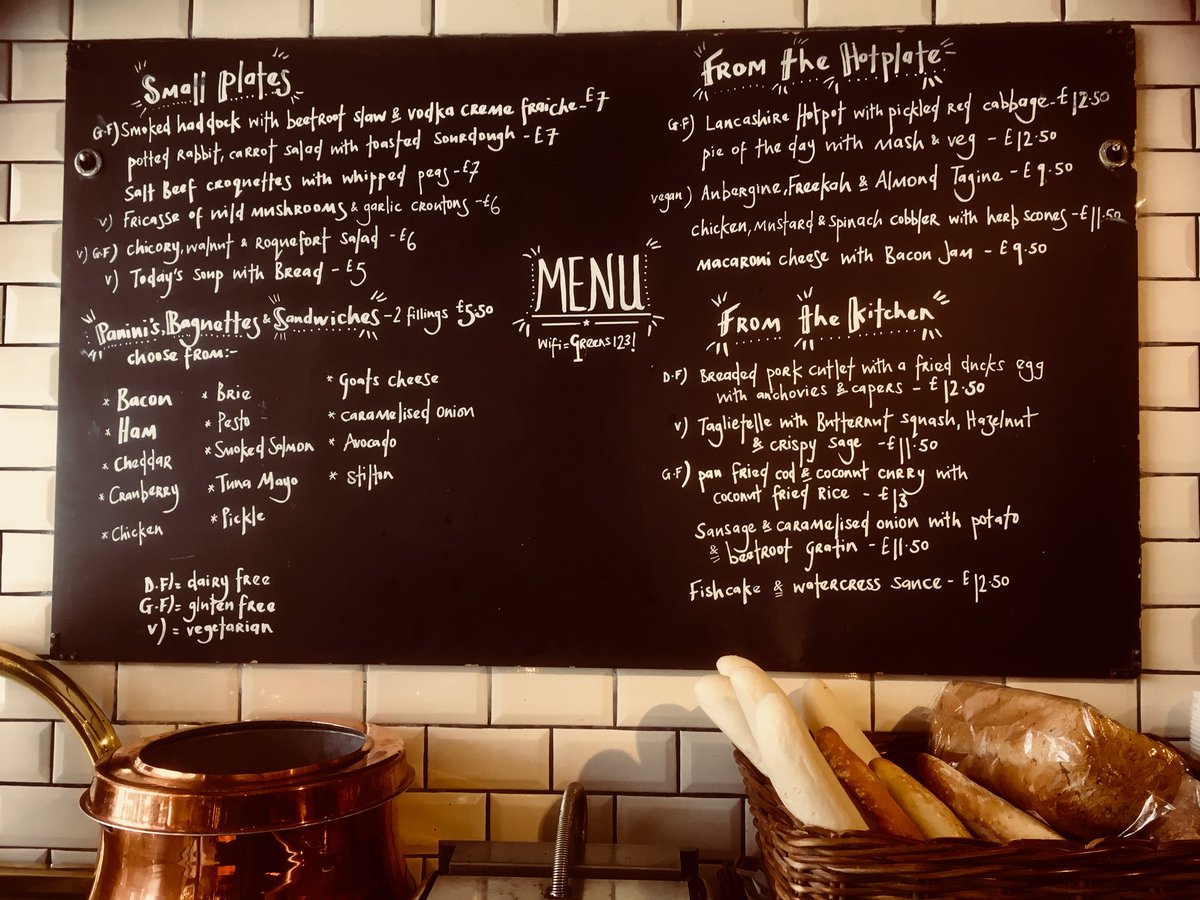 Small Plates
G.F) Smoked haddock with beetroot slaw & vodka creme fraiche - £7
potted Rabbit, carrot salad with toasted sourdough - £7
Salt Beef croquettes with whipped peas - £7
v) Fricasse of wild mushrooms & garlic croutons - £6
v) G.F) chicory, walnut & Roquefort salad - £6
v) Today's soup with Bread - £5
Panini's, Baguettes & Sandwiches - 2 fillings £5.50
choose from:-
* Bacon
* Ham
* Cheddar
* Cranberry
* Chicken
* Brie
* Pesto
* Smoked Salmon
* Tuna Mayo
* Pickle
* Goats cheese
* caramelised onion
* Avocado
* Stilton
D.F) = dairy free
G.F) = gluten free
v) = vegetarian
MENU
*
Wifi = Greens123!
From the Hotplate
G.F) Lancashire Hotpot with pickled red cabbage - £12.50
pie of the day with mash & veg - £12.50
vegan) Aubergine, Freekah & Almond Tagine - £9.50
chicken, mustard & spinach cobbler with herb scones - £11.50
macaroni cheese with Bacon Jam - £9.50
From the Kitchen
D.F) Breaded pork cutlet with a fried ducks egg
with anchovies & capers - £12.50
v) Taglietelle with Butternut squash, Hazelnut
& crispy sage - £11.50
G.F) pan fried cod & coconut curry with
coconut fried Rice - £13
Sausage & caramelised onion with potato
& beetroot gratin - £11.50
Fishcake & watercress sauce - £12.50